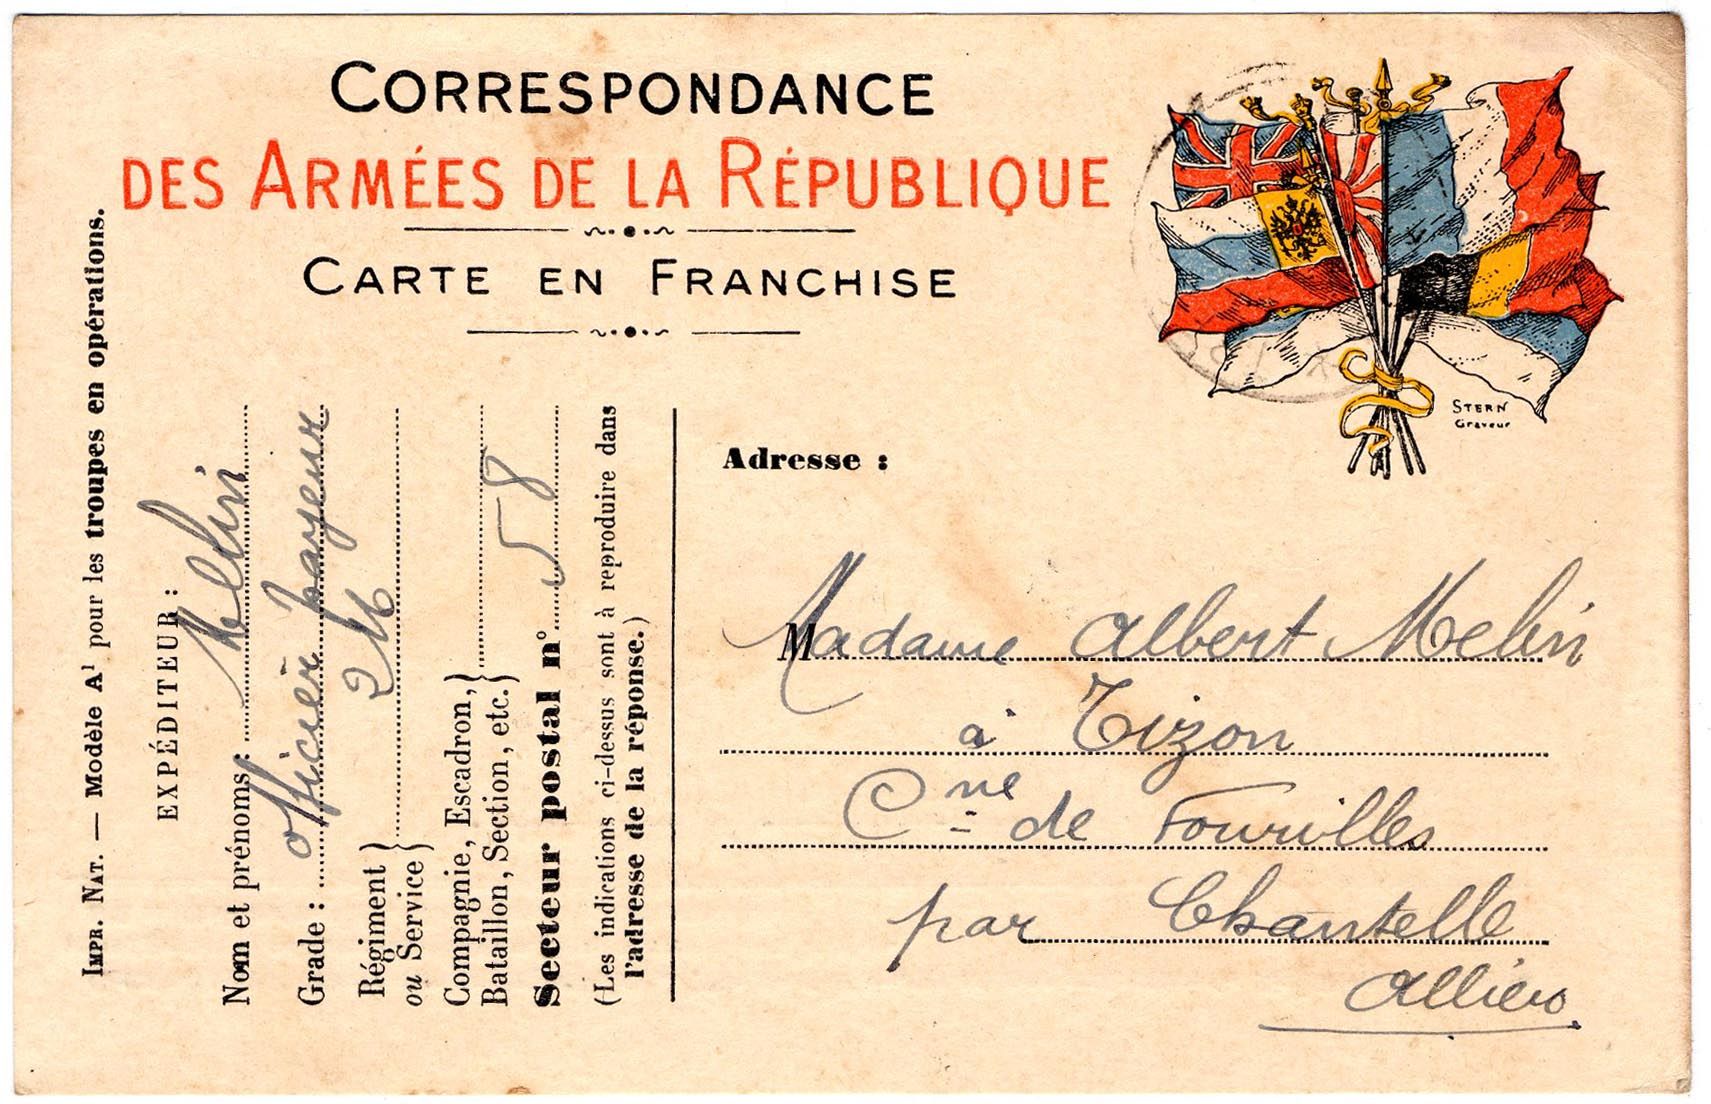 CORRESPONDANCE
DES ARMÉES DE LA RÉPUBLIQUE
CARTE EN FRANCHISE
STERN
Graveur
IMPR. NAT. — Modèle A¹ pour les troupes en opérations.
EXPÉDITEUR :
Nom et prénoms : Melin
Grade : officier payeur
Régiment
ou Service }
Compagnie, Escadron,
Bataillon, Section, etc. }
Secteur postal n° 58
(Les indications ci-dessus sont à reproduire dans
l'adresse de la réponse.)
Adresse :
Madame Albert Melin
à Tizon
Cne de Fourilles
par Chantelle
Allier